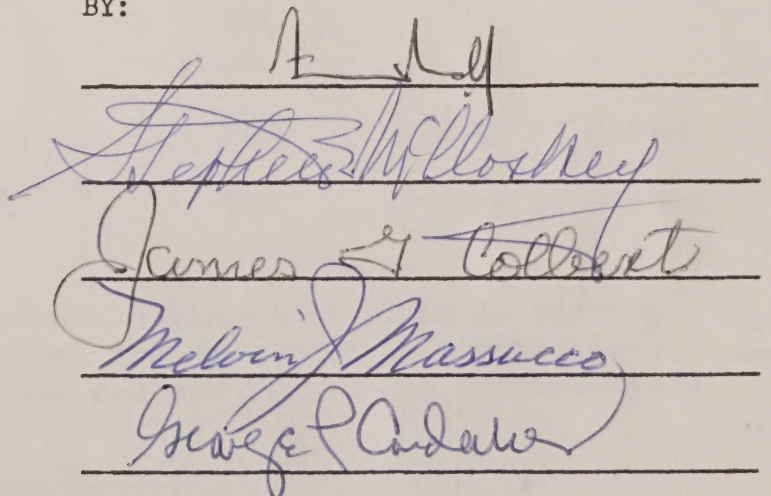 BY:
Stephen E. McCloskey
James G Colbert
Melvin J Massucco
George P